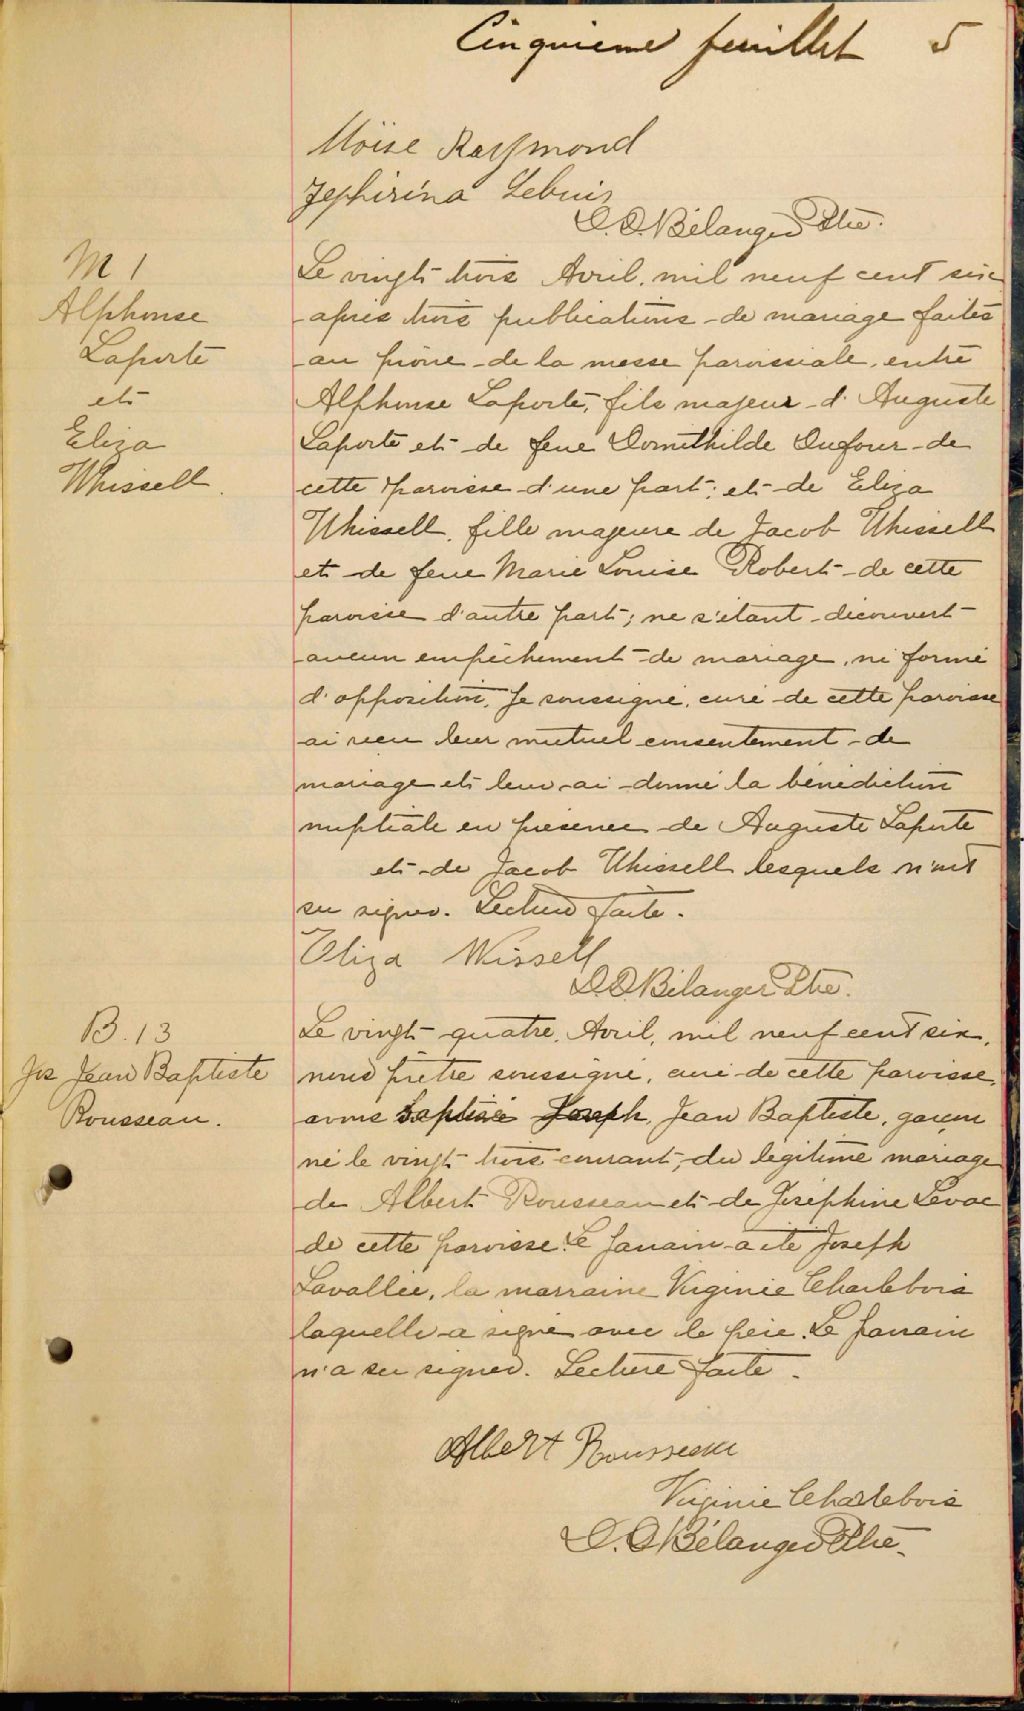 Cinquieme feuillet 5
Moïse Raymond
Zephirina Lebuis
D.O. Bélanger Ptre.
M 1
Alphonse
Laporte
et
Eliza
Whissell.
Le vingt trois Avril, mil neuf cent six
après trois publications de mariage faites
au prône de la messe paroissiale, entre
Alphonse Laporte, fils majeur d'Auguste
Laporte et de feue Domithilde Dufour de
cette paroisse d'une part; et de Eliza
Whissell, fille majeure de Jacob Whissell
et de feue Marie Louise Robert de cette
paroisse d'autre part; ne s'étant découvert
aucun empêchement de mariage, ni formé
d'opposition, Je soussigné, curé de cette paroisse
ai reçu leur mutuel consentement de
mariage et leur ai donné la bénédiction
nuptiale en présence de Auguste Laporte
et de Jacob Whissell lesquels n'ont
su signer. Lecture faite.
Eliza Wissell
D.O. Bélanger Ptre.
B. 13
Jos Jean Baptiste
Rousseau.
Le vingt quatre, Avril, mil neuf cent six,
nous prêtre soussigné, curé de cette paroisse,
avons baptisé Joseph, Jean Baptiste, garçon
né le vingt trois courant, du légitime mariage
de Albert Rousseau et de Joséphine Levac
de cette paroisse. Le parrain a été Joseph
Lavallée, la marraine Virginie Charlebois
laquelle a signé avec le père. Le parrain
n'a su signer. Lecture faite.
Albert Rousseau
Virginie Charlebois
D.O. Bélanger Ptre.